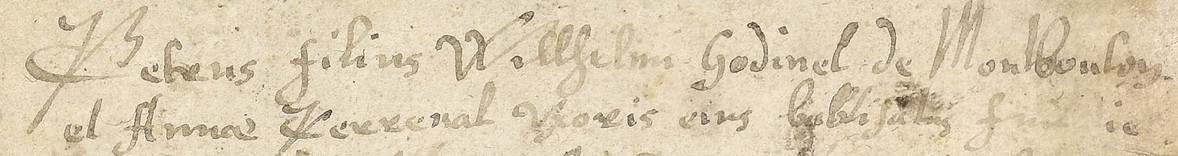 Petrus filius Willhelmi Hodinel de Montboulon
et Annae Perrenal Uxoris eius babtisatus fuit die